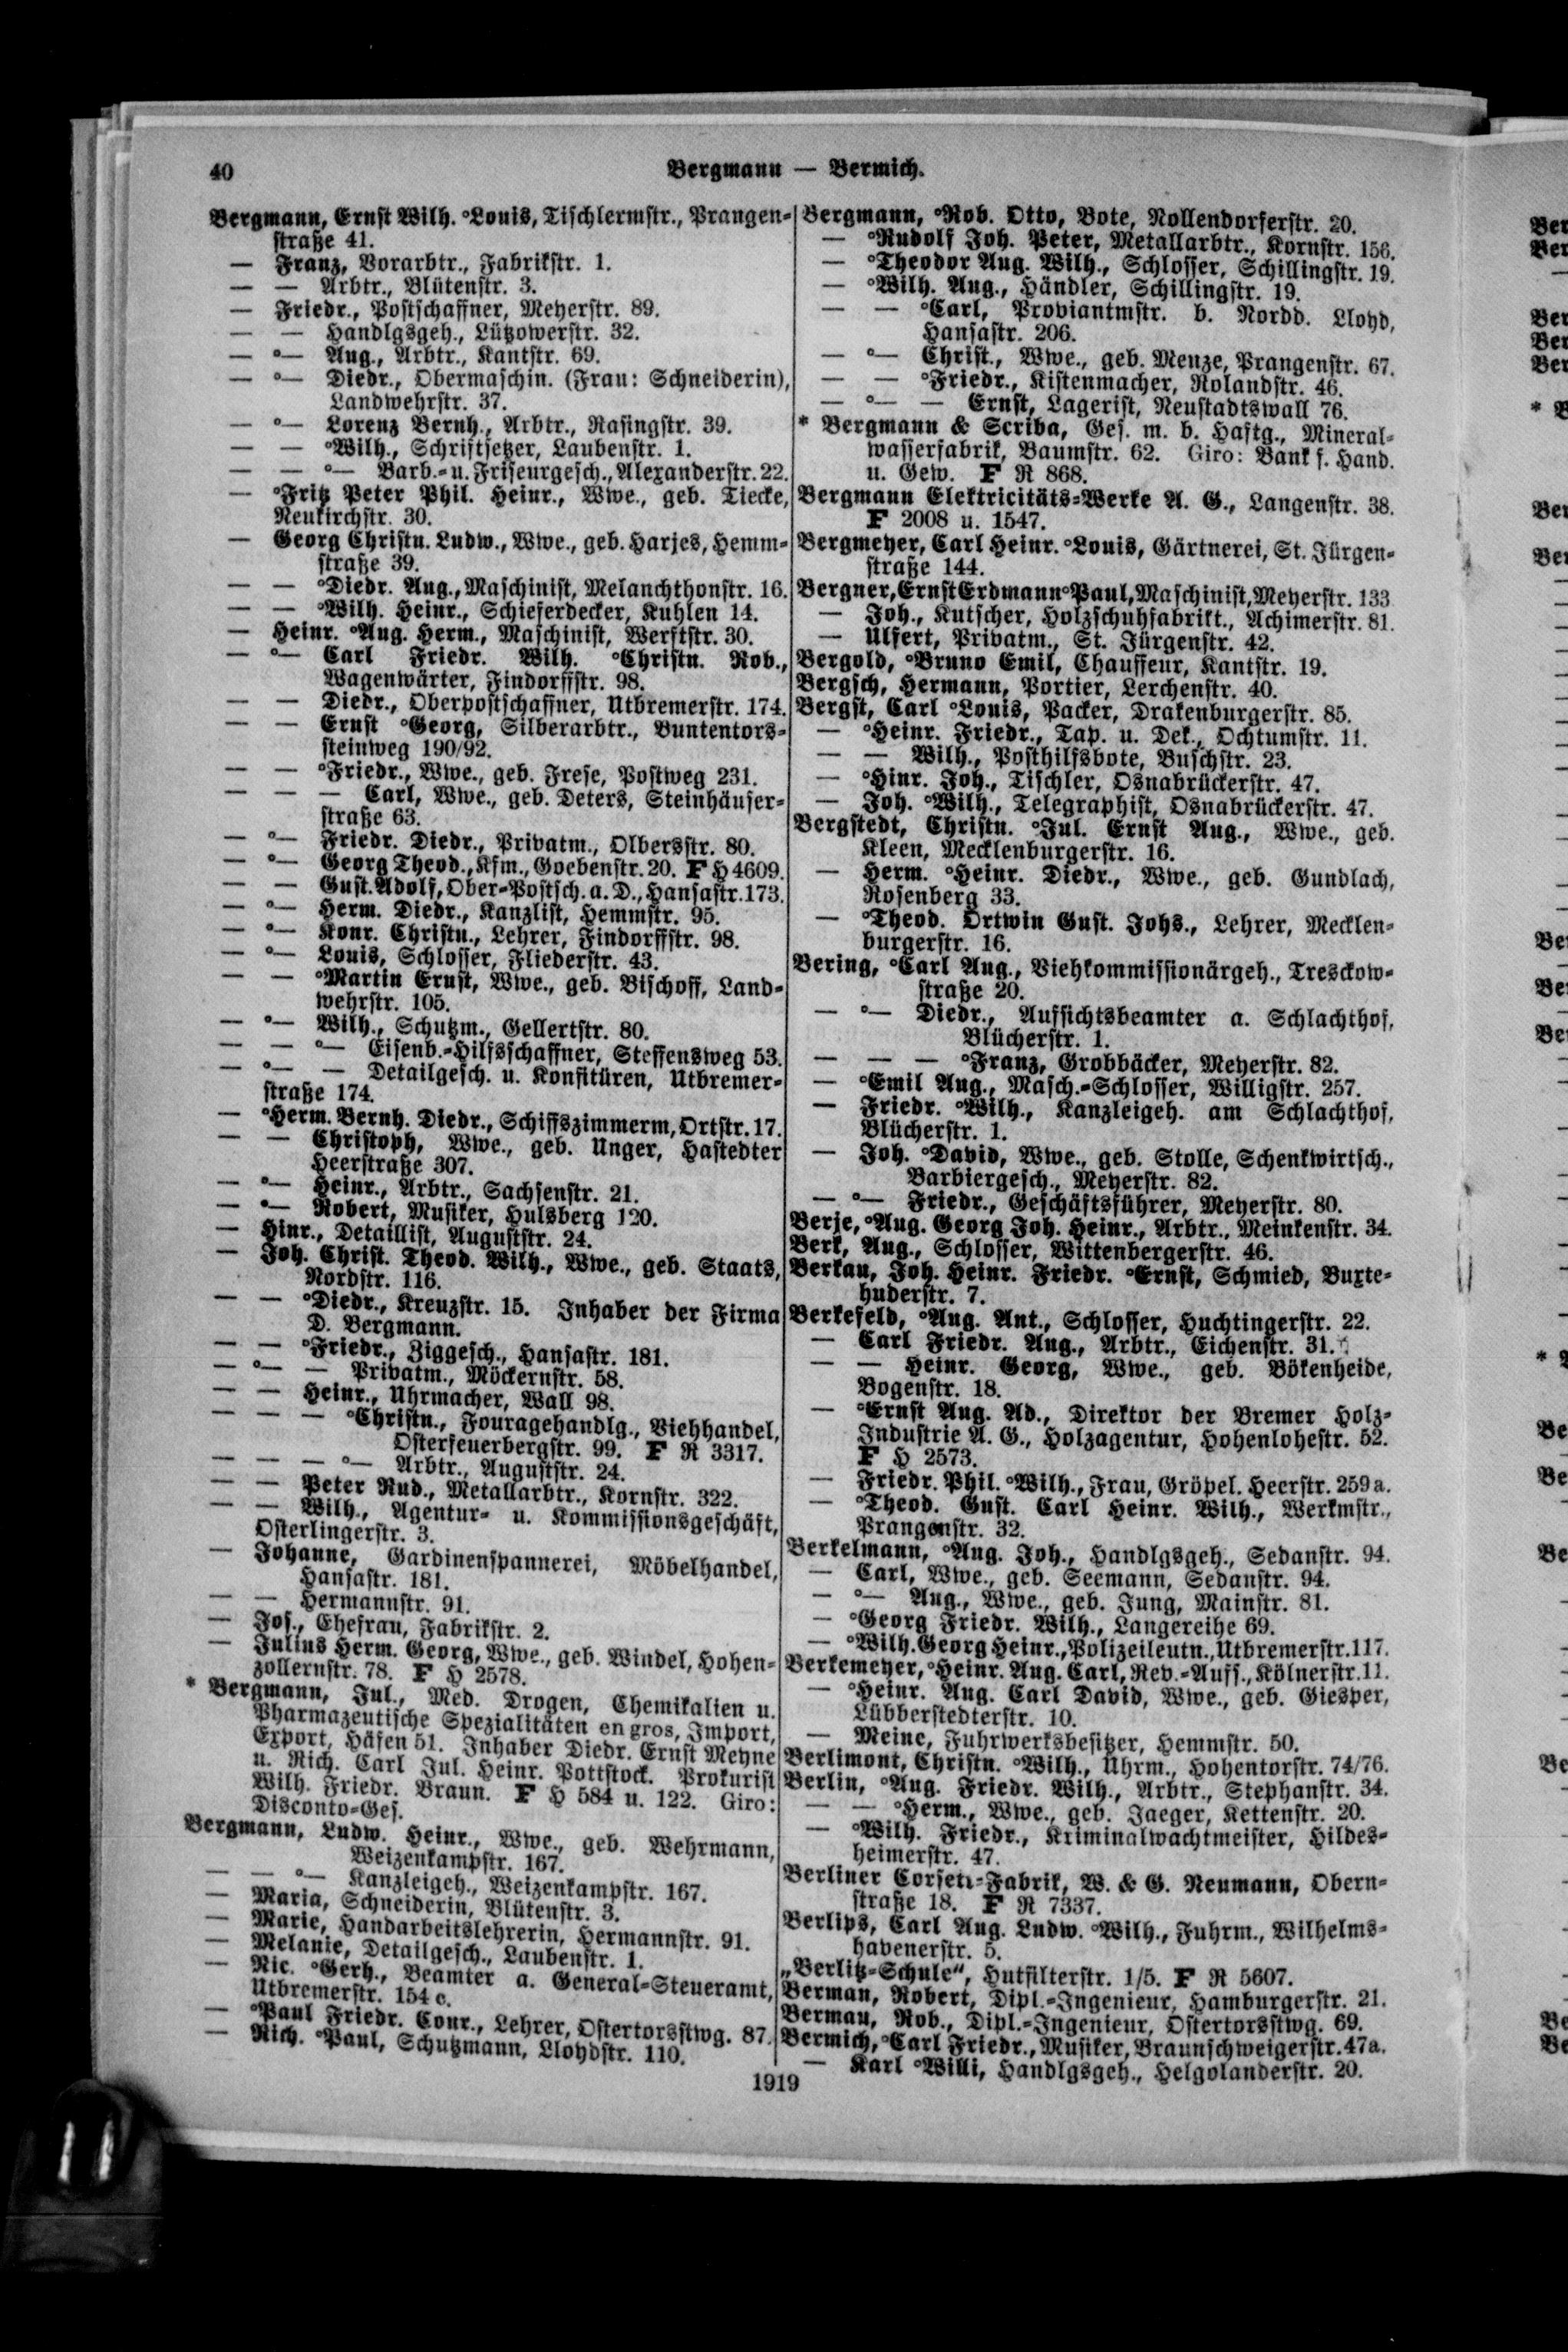 40
Bergmann — Bermich.
Bergmann, Ernst Wilh. °Louis, Tischlermstr., Prangen-
straße 41.
— Franz, Vorarbtr., Fabrikstr. 1.
— — Arbtr., Blütenstr. 3.
— Friedr., Postschaffner, Meyerstr. 89.
— — Handlgsgeh., Lützowerstr. 32.
— °— Aug., Arbtr., Kantstr. 69.
— °— Diedr., Obermaschin. (Frau: Schneiderin),
Landwehrstr. 37.
— °— Lorenz Bernh., Arbtr., Rasingstr. 39.
— — °Wilh., Schriftsetzer, Laubenstr. 1.
— — °— Barb.- u. Friseurgesch., Alexanderstr. 22.
— °Fritz Peter Phil. Heinr., Wwe., geb. Tiecke,
Neukirchstr. 30.
— Georg Christn. Ludw., Wwe., geb. Harjes, Hemm-
straße 39.
— — °Diedr. Aug., Maschinist, Melanchthonstr. 16.
— — °Wilh. Heinr., Schieferdecker, Kuhlen 14.
— Heinr. °Aug. Herm., Maschinist, Werftstr. 30.
— °— Carl Friedr. Wilh. °Christn. Rob.,
Wagenwärter, Findorffstr. 98.
— — Diedr., Oberpostschaffner, Utbremerstr. 174.
— — Ernst °Georg, Silberarbtr., Buntentors-
steinweg 190/92.
— — °Friedr., Wwe., geb. Frese, Postweg 231.
— — — Carl, Wwe., geb. Deters, Steinhäuser-
straße 63.
— °— Friedr. Diedr., Privatm., Olbersstr. 80.
— °— Georg Theod., Kfm., Goebenstr. 20. F H 4609.
— — Gust. Adolf, Ober-Postsch. a. D., Hansastr. 173.
— °— Herm. Diedr., Kanzlist, Hemmstr. 95.
— °— Konr. Christn., Lehrer, Findorffstr. 98.
— °— Louis, Schlosser, Fliederstr. 43.
— — °Martin Ernst, Wwe., geb. Bischoff, Land-
wehrstr. 105.
— °— Wilh., Schutzm., Gellertstr. 80.
— — °— Eisenb.-Hilfsschaffner, Steffensweg 53.
— °— — Detailgesch. u. Konfitüren, Utbremer-
straße 174.
— °Herm. Bernh. Diedr., Schiffszimmerm, Ortstr. 17.
— — Christoph, Wwe., geb. Unger, Hastedter
Heerstraße 307.
— °— Heinr., Arbtr., Sachsenstr. 21.
— °— Robert, Musiker, Hulsberg 120.
— Hinr., Detaillist, Auguststr. 24.
— Joh. Christ. Theod. Wilh., Wwe., geb. Staats,
Nordstr. 116.
— — °Diedr., Kreuzstr. 15. Inhaber der Firma
D. Bergmann.
— — °Friedr., Ziggesch., Hansastr. 181.
— °— — Privatm., Möckernstr. 58.
— — Heinr., Uhrmacher, Wall 98.
— — — °Christn., Fouragehandlg., Viehhandel,
Osterfeuerbergstr. 99. F R 3317.
— — — °— Arbtr., Auguststr. 24.
— — Peter Rud., Metallarbtr., Kornstr. 322.
— — Wilh., Agentur- u. Kommissionsgeschäft,
Osterlingerstr. 3.
— Johanne, Gardinenspannerei, Möbelhandel,
Hansastr. 181.
— — Hermannstr. 91.
— Jos., Ehefrau, Fabrikstr. 2.
— Julius Herm. Georg, Wwe., geb. Windel, Hohen-
zollernstr. 78. F H 2578.
* Bergmann, Jul., Med. Drogen, Chemikalien u.
Pharmazeutische Spezialitäten en gros, Import,
Export, Häfen 51. Inhaber Diedr. Ernst Meyne
u. Rich. Carl Jul. Heinr. Pottstock. Prokurist
Wilh. Friedr. Braun. F H 584 u. 122. Giro:
Disconto-Ges.
Bergmann, Ludw. Heinr., Wwe., geb. Wehrmann,
Weizenkampstr. 167.
— — °— Kanzleigeh., Weizenkampstr. 167.
— Maria, Schneiderin, Blütenstr. 3.
— Marie, Handarbeitslehrerin, Hermannstr. 91.
— Melanie, Detailgesch., Laubenstr. 1.
— Nic. °Gerh., Beamter a. General-Steueramt,
Utbremerstr. 154 c.
— °Paul Friedr. Conr., Lehrer, Ostertorsstwg. 87.
— Rich. °Paul, Schutzmann, Lloydstr. 110.
Bergmann, °Rob. Otto, Bote, Nollendorferstr. 20.
— °Rudolf Joh. Peter, Metallarbtr., Kornstr. 156.
— °Theodor Aug. Wilh., Schlosser, Schillingstr. 19.
— °Wilh. Aug., Händler, Schillingstr. 19.
— — °Carl, Proviantmstr. b. Nordd. Lloyd,
Hansastr. 206.
— °— Christ., Wwe., geb. Menze, Prangenstr. 67.
— — °Friedr., Kistenmacher, Rolandstr. 46.
— °— — Ernst, Lagerist, Neustadtswall 76.
* Bergmann & Scriba, Ges. m. b. Haftg., Mineral-
wasserfabrik, Baumstr. 62. Giro: Bank f. Hand.
u. Gew. F R 868.
Bergmann Elektricitäts-Werke A. G., Langenstr. 38.
F 2008 u. 1547.
Bergmeyer, Carl Heinr. °Louis, Gärtnerei, St. Jürgen-
straße 144.
Bergner, Ernst Erdmann °Paul, Maschinist, Meyerstr. 133
— Joh., Kutscher, Holzschuhfabrikt., Achimerstr. 81.
— Ulfert, Privatm., St. Jürgenstr. 42.
Bergold, °Bruno Emil, Chauffeur, Kantstr. 19.
Bergsch, Hermann, Portier, Lerchenstr. 40.
Bergst, Carl °Louis, Packer, Drakenburgerstr. 85.
— °Heinr. Friedr., Tap. u. Dek., Ochtumstr. 11.
— — Wilh., Posthilfsbote, Buschstr. 23.
— °Hinr. Joh., Tischler, Osnabrückerstr. 47.
— Joh. °Wilh., Telegraphist, Osnabrückerstr. 47.
Bergstedt, Christn. °Jul. Ernst Aug., Wwe., geb.
Kleen, Mecklenburgerstr. 16.
— Herm. °Heinr. Diedr., Wwe., geb. Gundlach,
Rosenberg 33.
— °Theod. Ortwin Gust. Johs., Lehrer, Mecklen-
burgerstr. 16.
Bering, °Carl Aug., Viehkommissionärgeh., Tresckow-
straße 20.
— °— Diedr., Aufsichtsbeamter a. Schlachthof,
Blücherstr. 1.
— — — °Franz, Grobbäcker, Meyerstr. 82.
— °Emil Aug., Masch.-Schlosser, Willigstr. 257.
— Friedr. °Wilh., Kanzleigeh. am Schlachthof,
Blücherstr. 1.
— Joh. °David, Wwe., geb. Stolle, Schenkwirtsch.,
Barbiergesch., Meyerstr. 82.
— °— Friedr., Geschäftsführer, Meyerstr. 80.
Berje, °Aug. Georg Joh. Heinr., Arbtr., Meinkenstr. 34.
Berk, Aug., Schlosser, Wittenbergerstr. 46.
Berkau, Joh. Heinr. Friedr. °Ernst, Schmied, Buxte-
huderstr. 7.
Berkefeld, °Aug. Ant., Schlosser, Huchtingerstr. 22.
— Carl Friedr. Aug., Arbtr., Eichenstr. 31.
— — Heinr. Georg, Wwe., geb. Bökenheide,
Bogenstr. 18.
— °Ernst Aug. Ad., Direktor der Bremer Holz-
Industrie A. G., Holzagentur, Hohenlohestr. 52.
F H 2573.
— Friedr. Phil. °Wilh., Frau, Gröpel. Heerstr. 259 a.
— °Theod. Gust. Carl Heinr. Wilh., Werkmstr.,
Prangenstr. 32.
Berkelmann, °Aug. Joh., Handlgsgeh., Sedanstr. 94.
— Carl, Wwe., geb. Seemann, Sedanstr. 94.
— °— Aug., Wwe., geb. Jung, Mainstr. 81.
— °Georg Friedr. Wilh., Langereihe 69.
— °Wilh. Georg Heinr., Polizeileutn., Utbremerstr. 117.
Berkemeyer, °Heinr. Aug. Carl, Rev.-Auff., Kölnerstr. 11.
— °Heinr. Aug. Carl David, Wwe., geb. Giesper,
Lübberstedterstr. 10.
— Meine, Fuhrwerksbesitzer, Hemmstr. 50.
Berlimont, Christn. °Wilh., Uhrm., Hohentorstr. 74/76.
Berlin, °Aug. Friedr. Wilh., Arbtr., Stephanstr. 34.
— — °Herm., Wwe., geb. Jaeger, Kettenstr. 20.
— °Wilh. Friedr., Kriminalwachtmeister, Hildes-
heimerstr. 47.
Berliner Corsett-Fabrik, W. & G. Neumann, Obern-
straße 18. F R 7337.
Berlips, Carl Aug. Ludw. °Wilh., Fuhrm., Wilhelms-
havenerstr. 5.
„Berlitz-Schule“, Hutfilterstr. 1/5. F R 5607.
Berman, Robert, Dipl.-Ingenieur, Hamburgerstr. 21.
Bermau, Rob., Dipl.-Ingenieur, Ostertorsstwg. 69.
Bermich, °Carl Friedr., Musiker, Braunschweigerstr. 47a.
— Karl °Willi, Handlgsgeh., Helgolanderstr. 20.
1919